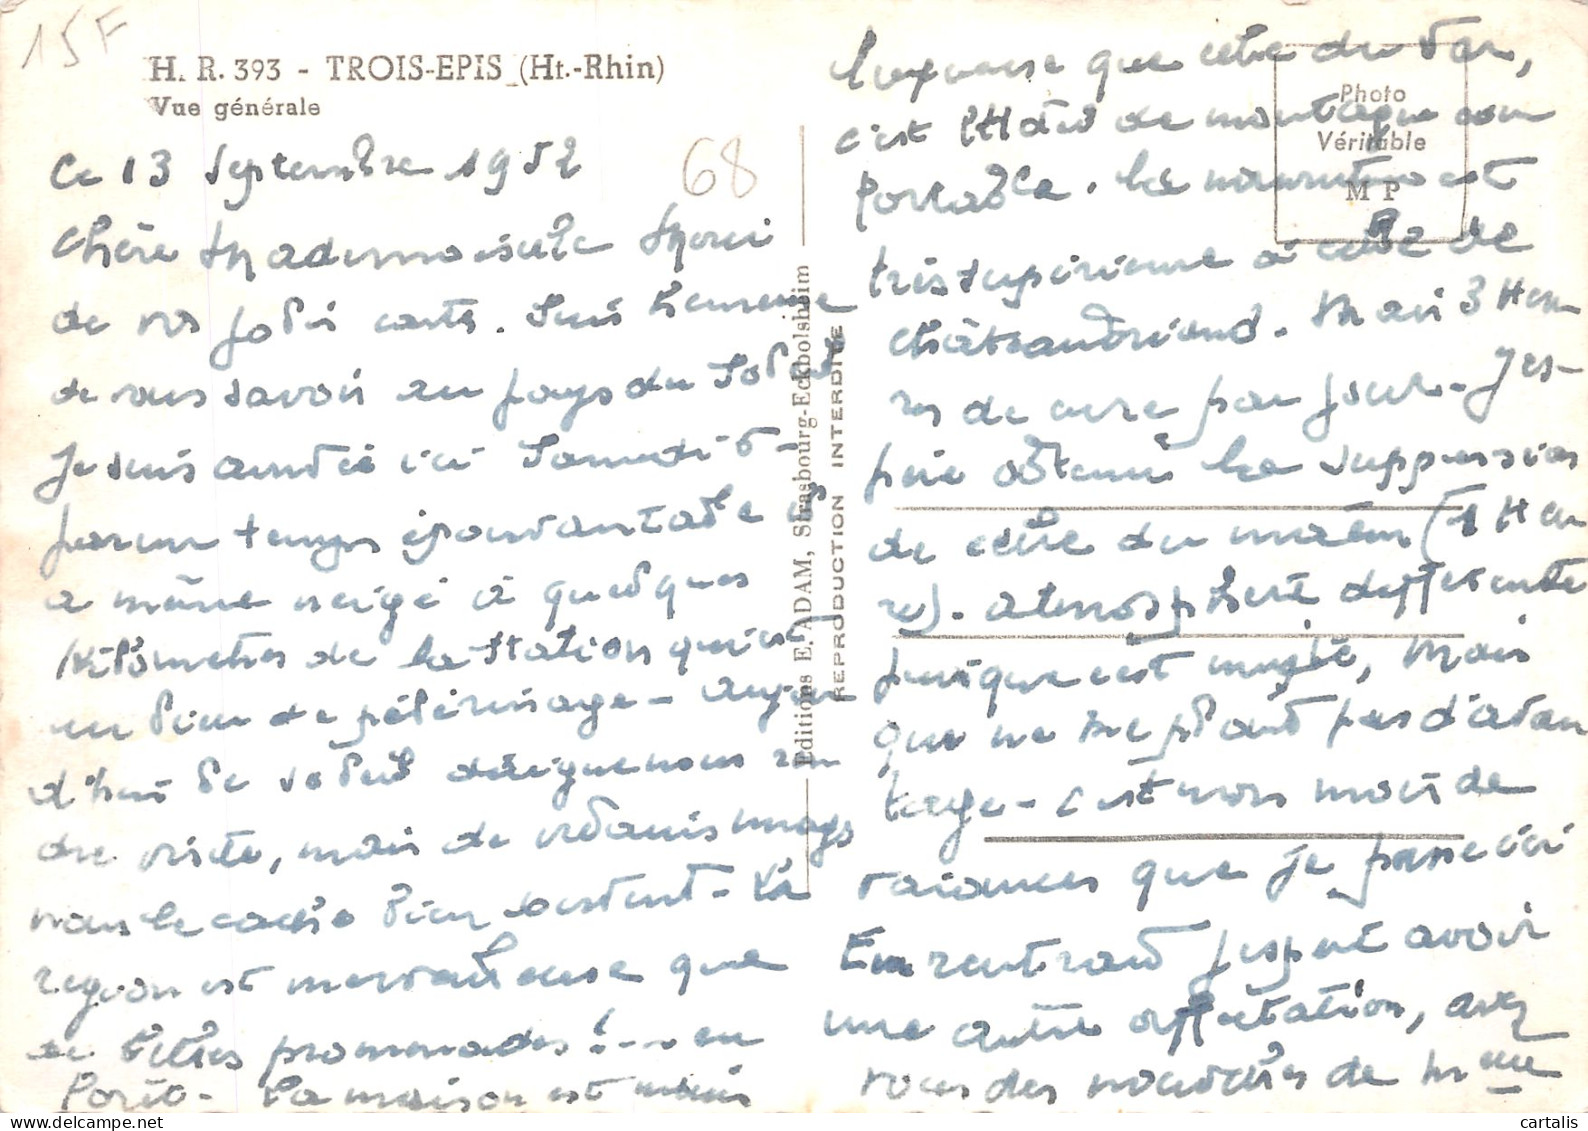 15F
H. R. 393 - TROIS-EPIS (Ht.-Rhin)
Vue générale
68
Ce 13 Septembre 1952
Chère Mademoiselle Merci
de vos jolies cartes. Suis heureuse
de vous savoir au pays du Soleil
Je suis arrivée ici Samedi 6-
par un temps épouvantable
a même neigé à quelques
Kilomètres de la station qui est
un lieu de pèlerinage - aujour
d'hui le soleil daigne nous ren
dre visite, mais de vilains nuages
nous le cache bien souvent - La
région est merveilleuse que
de belles promenades!... en
forêt - La maison est moins
Editions E. ADAM, Strasbourg-Eckbolsheim
REPRODUCTION INTERDITE
Photo
Véritable
M P
luxueuse que celle du Var,
c'est l'Hôtel de montagne com
portable. La nourriture est
très supérieure à celle de
châteaubriand. Mais 3 Heu
res de cure par jour - J'es-
père obtenir la suppression
de celle du matin (1 Heu
re). atmosphère différente
puisque c'est mixte, mais
que ne me plaît pas d'avan
tage - c'est mon mois de
vacances que je passe ici
En rentrant j'espère avoir
une autre affectation, avez
vous des nouvelles de Mme